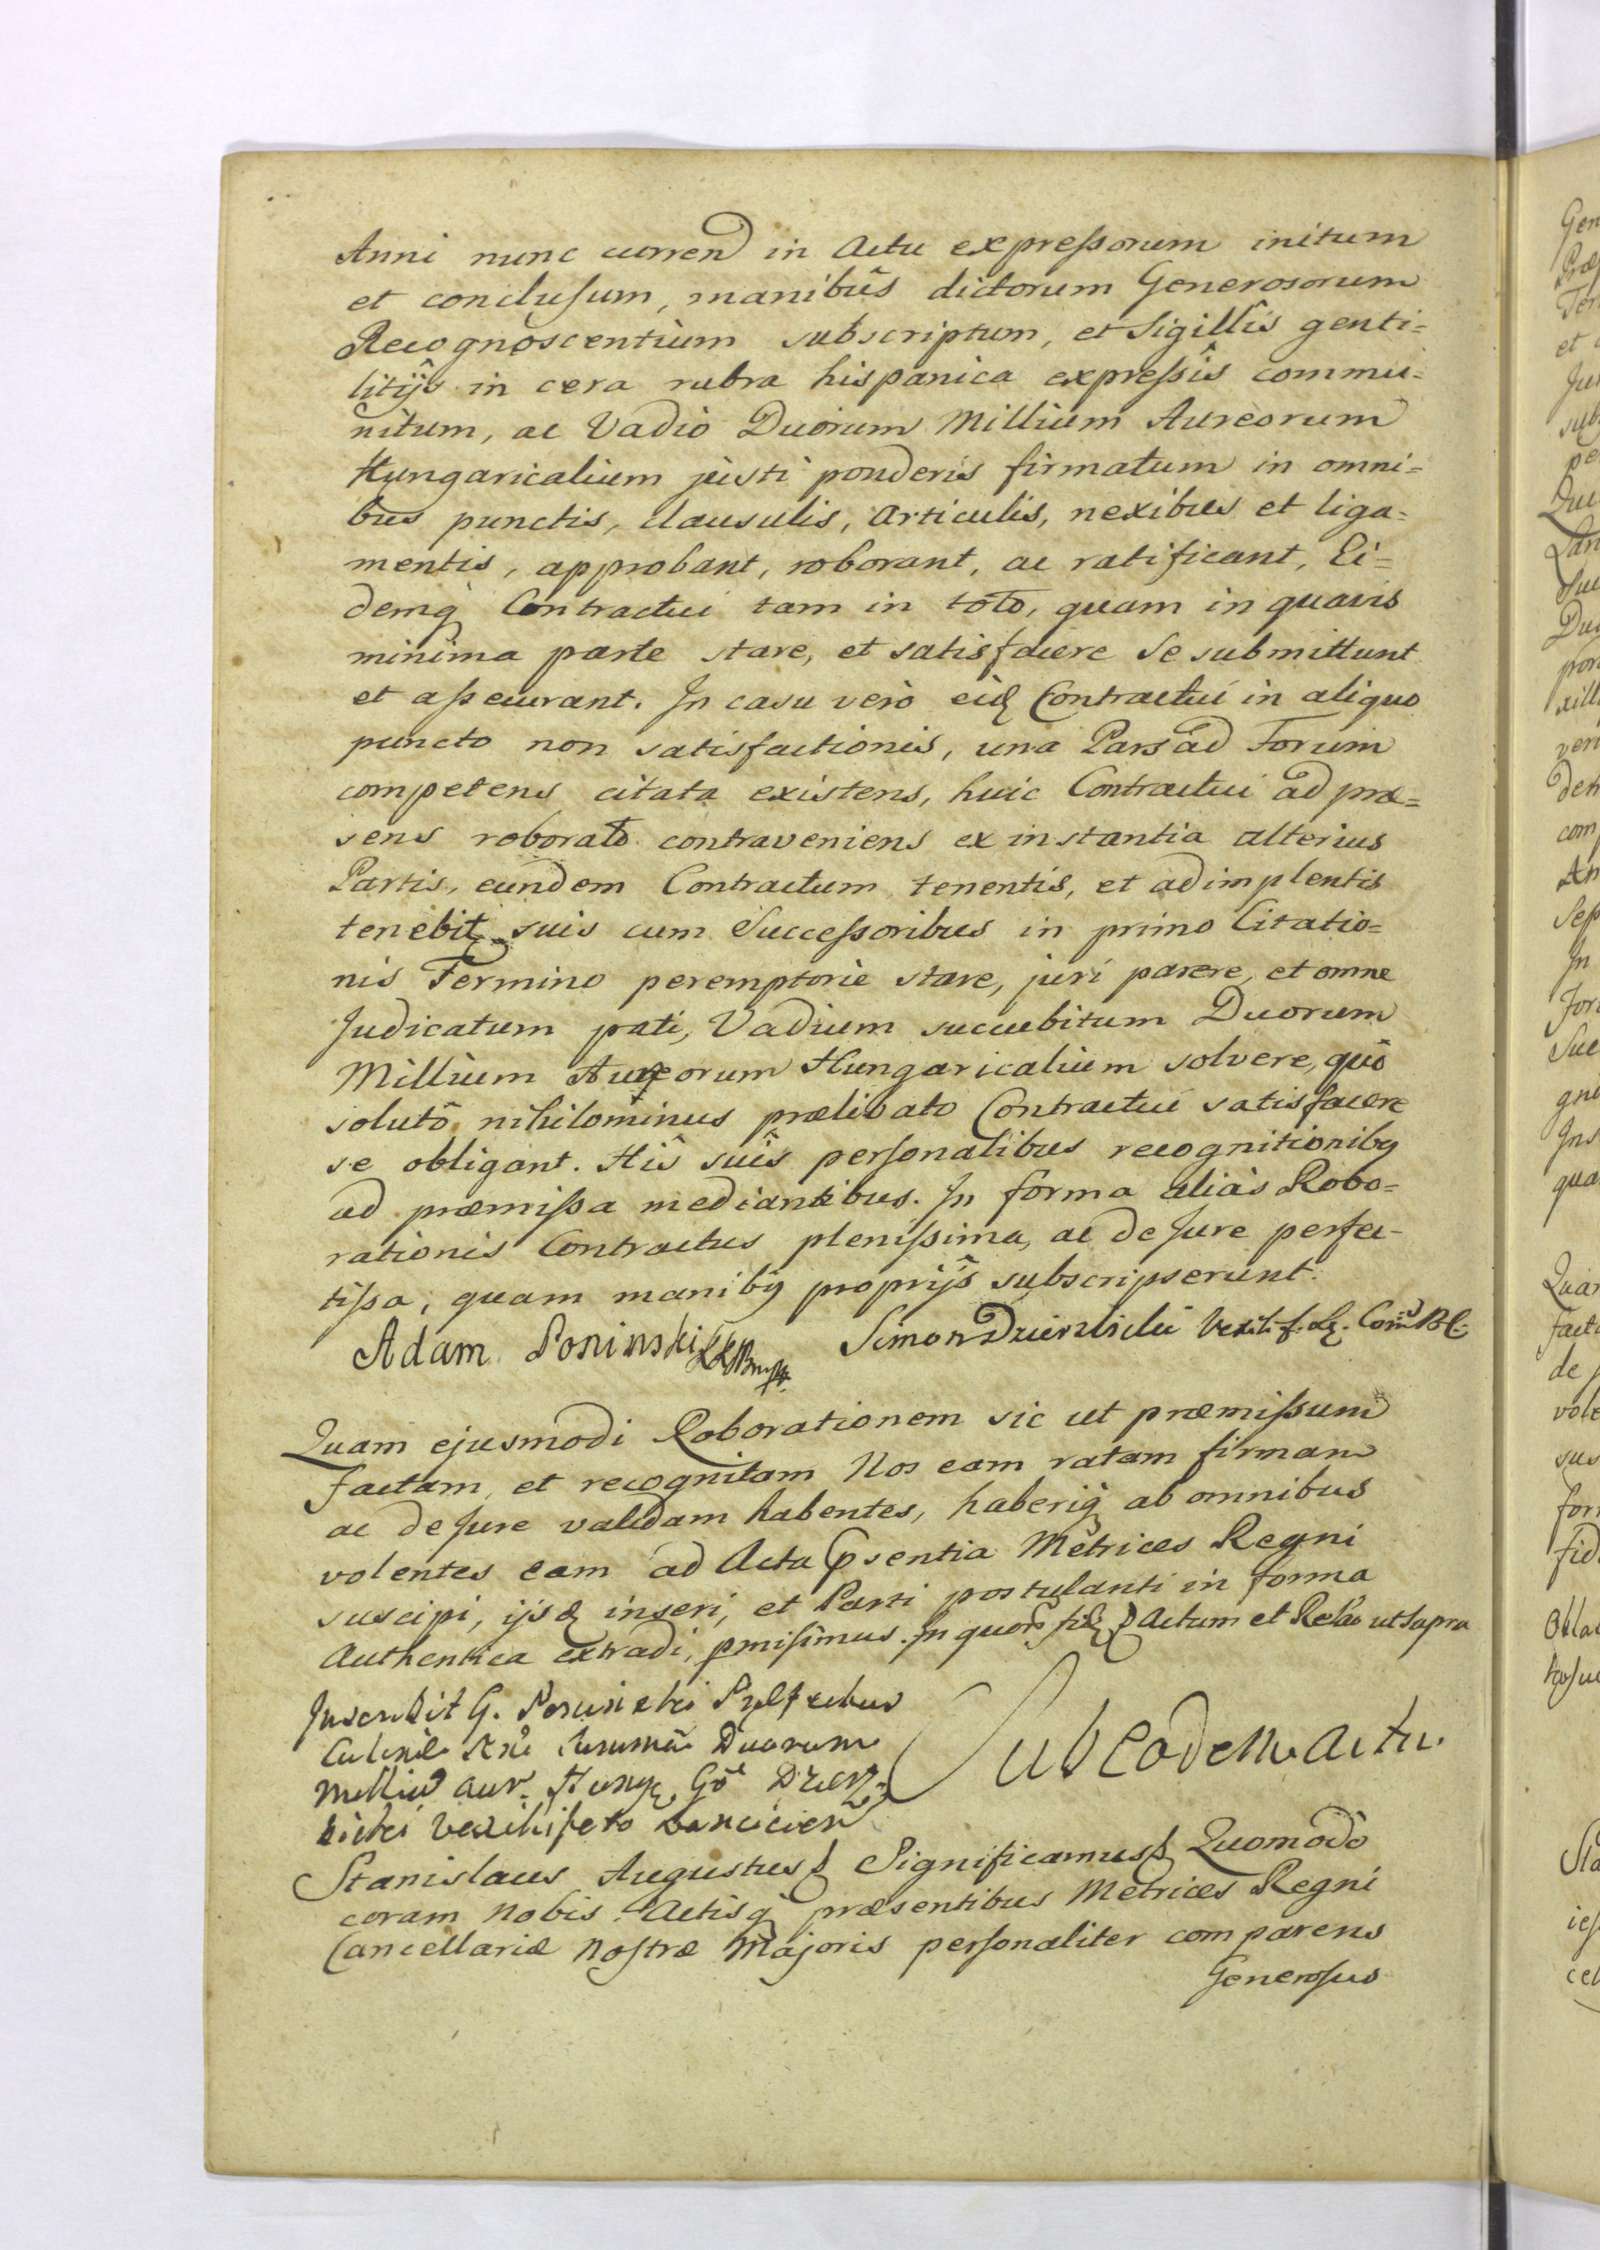 Anni nunc curren in Actu expressorum initum
et conclusum, manibûs dictorum Generosorum
Recognoscentium subscriptum, et Sigillîs genti=
litijs in cera rubra hispanica expressîs commu=
nitum, ac Vadio Duorum Millium Aureorum
Hungaricalium justi ponderis firmatum in omni=
bus punctis, clausulis, Articulis, nexibus et liga=
mentis, approbant, roborant, ac ratificant, Ei=
demq Contractui tam in toto, quam in quavis
minima parte stare, et satisfacere se submittunt
et assecurant. In casu verò eid Contractui in aliquo
puncto non satisfactionis, una Pars ad Forum
competens citata existens, huic Contractui ad præ=
sens roborato contraveniens ex instantia alterius
Partis, eundem Contractum tenentis, et adimplentis
tenebit suis cum Successoribus in primo Citatio=
nis Termino peremptorie stare, juri parere, et omne
Judicatum pati, Vadium succubitum Duorum
Millium Aureorum Hungaricalium solvere, quô
solutô nihilominus prælibato Contractui satisfacere
se obligant. Hîs suîs personalibus recognitionibq
ad præmissa mediantibus. In forma aliàs Robo=
rationis Contractus plenissima, ac de Jure perfec-
tissa, quam manibq proprijs subscripserunt.
Adam Poninski Simon Dzierzbicki Vexilif. Comd
Quam ejusmodi Roborationem sic ut præmissum
factam, et recognitam Nos eam ratam firmam
ac de Jure validam habentes, haberiq ab omnibus
volentes eam ad Acta psentia Metrices Regni
suscipi, ijsq inseri, et Parti postulanti in forma
Authentica extradi, pmisimus. In quor fid Actum et Relao ut supra
Inscribit G. Poninski Præfectus
Culinæ Summã Duorum
Milliu aur. Hung. Gô Dzierz-
bicki Vexillifero Lancicien
Sub eodem actu.
Stanislaus Augustus Significamus Quomodò
coram Nobis Actisq præsentibus Metrices Regni
Cancellariæ Nostræ Majoris personaliter comparens
Generosus